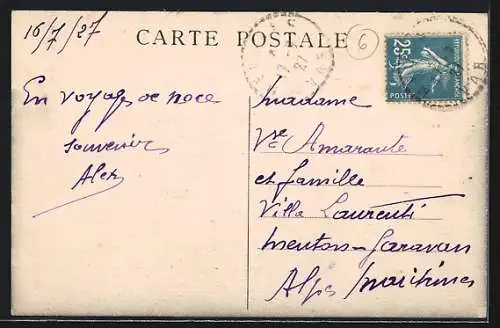 16/7/27
CARTE POSTALE
6
25c
POSTES
En voyage de noce
souvenir
Alex
madame
Vve Amarante
et famille
Villa Laurenti
menton-Garavan
Alpes maritimes
VAR